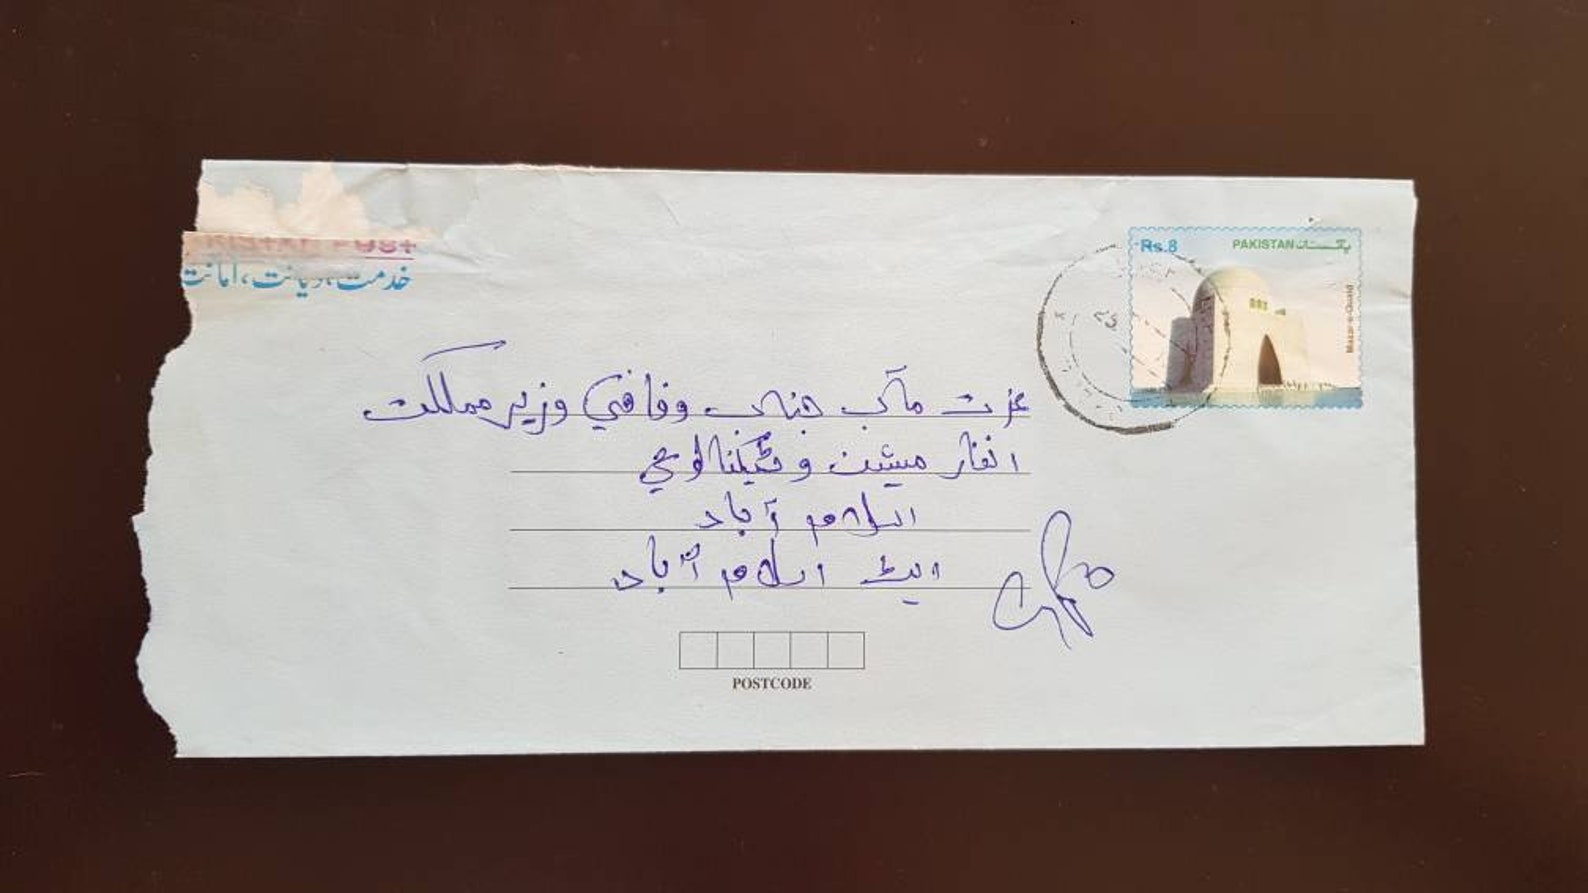 خدمت، دیانت، امانت
Rs.8 PAKISTAN پاکستان
Mazar-e-Quaid
عزت مآب جناب وفاقي وزیر مملکت
انفارمیشن و ٹیکنالوجي
اسلام آباد
اسلام آباد
POSTCODE